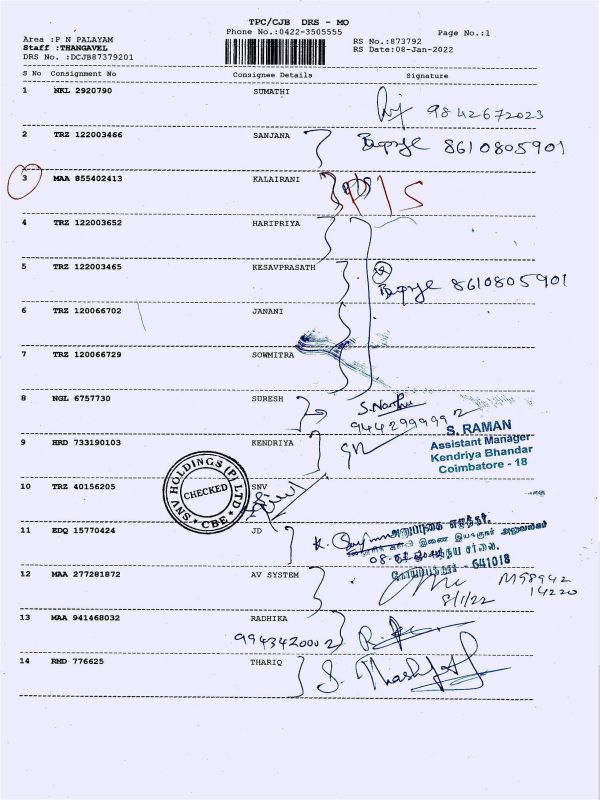 TPC/CJB DRS - MO
Phone No.:0422-3505555
Page No.:1
Area :P N PALAYAM
RS No.:873792
Staff :THANGAVEL
RS Date:08-Jan-2022
DRS No. :DCJB87379201
S No Consignment No Consignee Details Signature
1 NKL 2920790 SUMATHI
9842672023
2 TRZ 122003466 SANJANA
8610805901
3 MAA 855402413 KALAIRANI
4 TRZ 122003652 HARIPRIYA
5 TRZ 122003465 KESAVPRASATH
8610805901
6 TRZ 120066702 JANANI
7 TRZ 120066729 SOWMITRA
8 NGL 6757730 SURESH
9442999992
S. RAMAN
9 HRD 733190103 KENDRIYA
Assistant Manager
Kendriya Bhandar
Coimbatore - 18
SNV HOLDINGS (P) LTD
CHECKED
CBE
10 TRZ 40156205 SNV
11 EDQ 15770424 JD
641018
12 MAA 277281872 AV SYSTEM
M98942
14220
8/1/22
13 MAA 941468032 RADHIKA
9943420002
14 RMD 776625 THARIQ